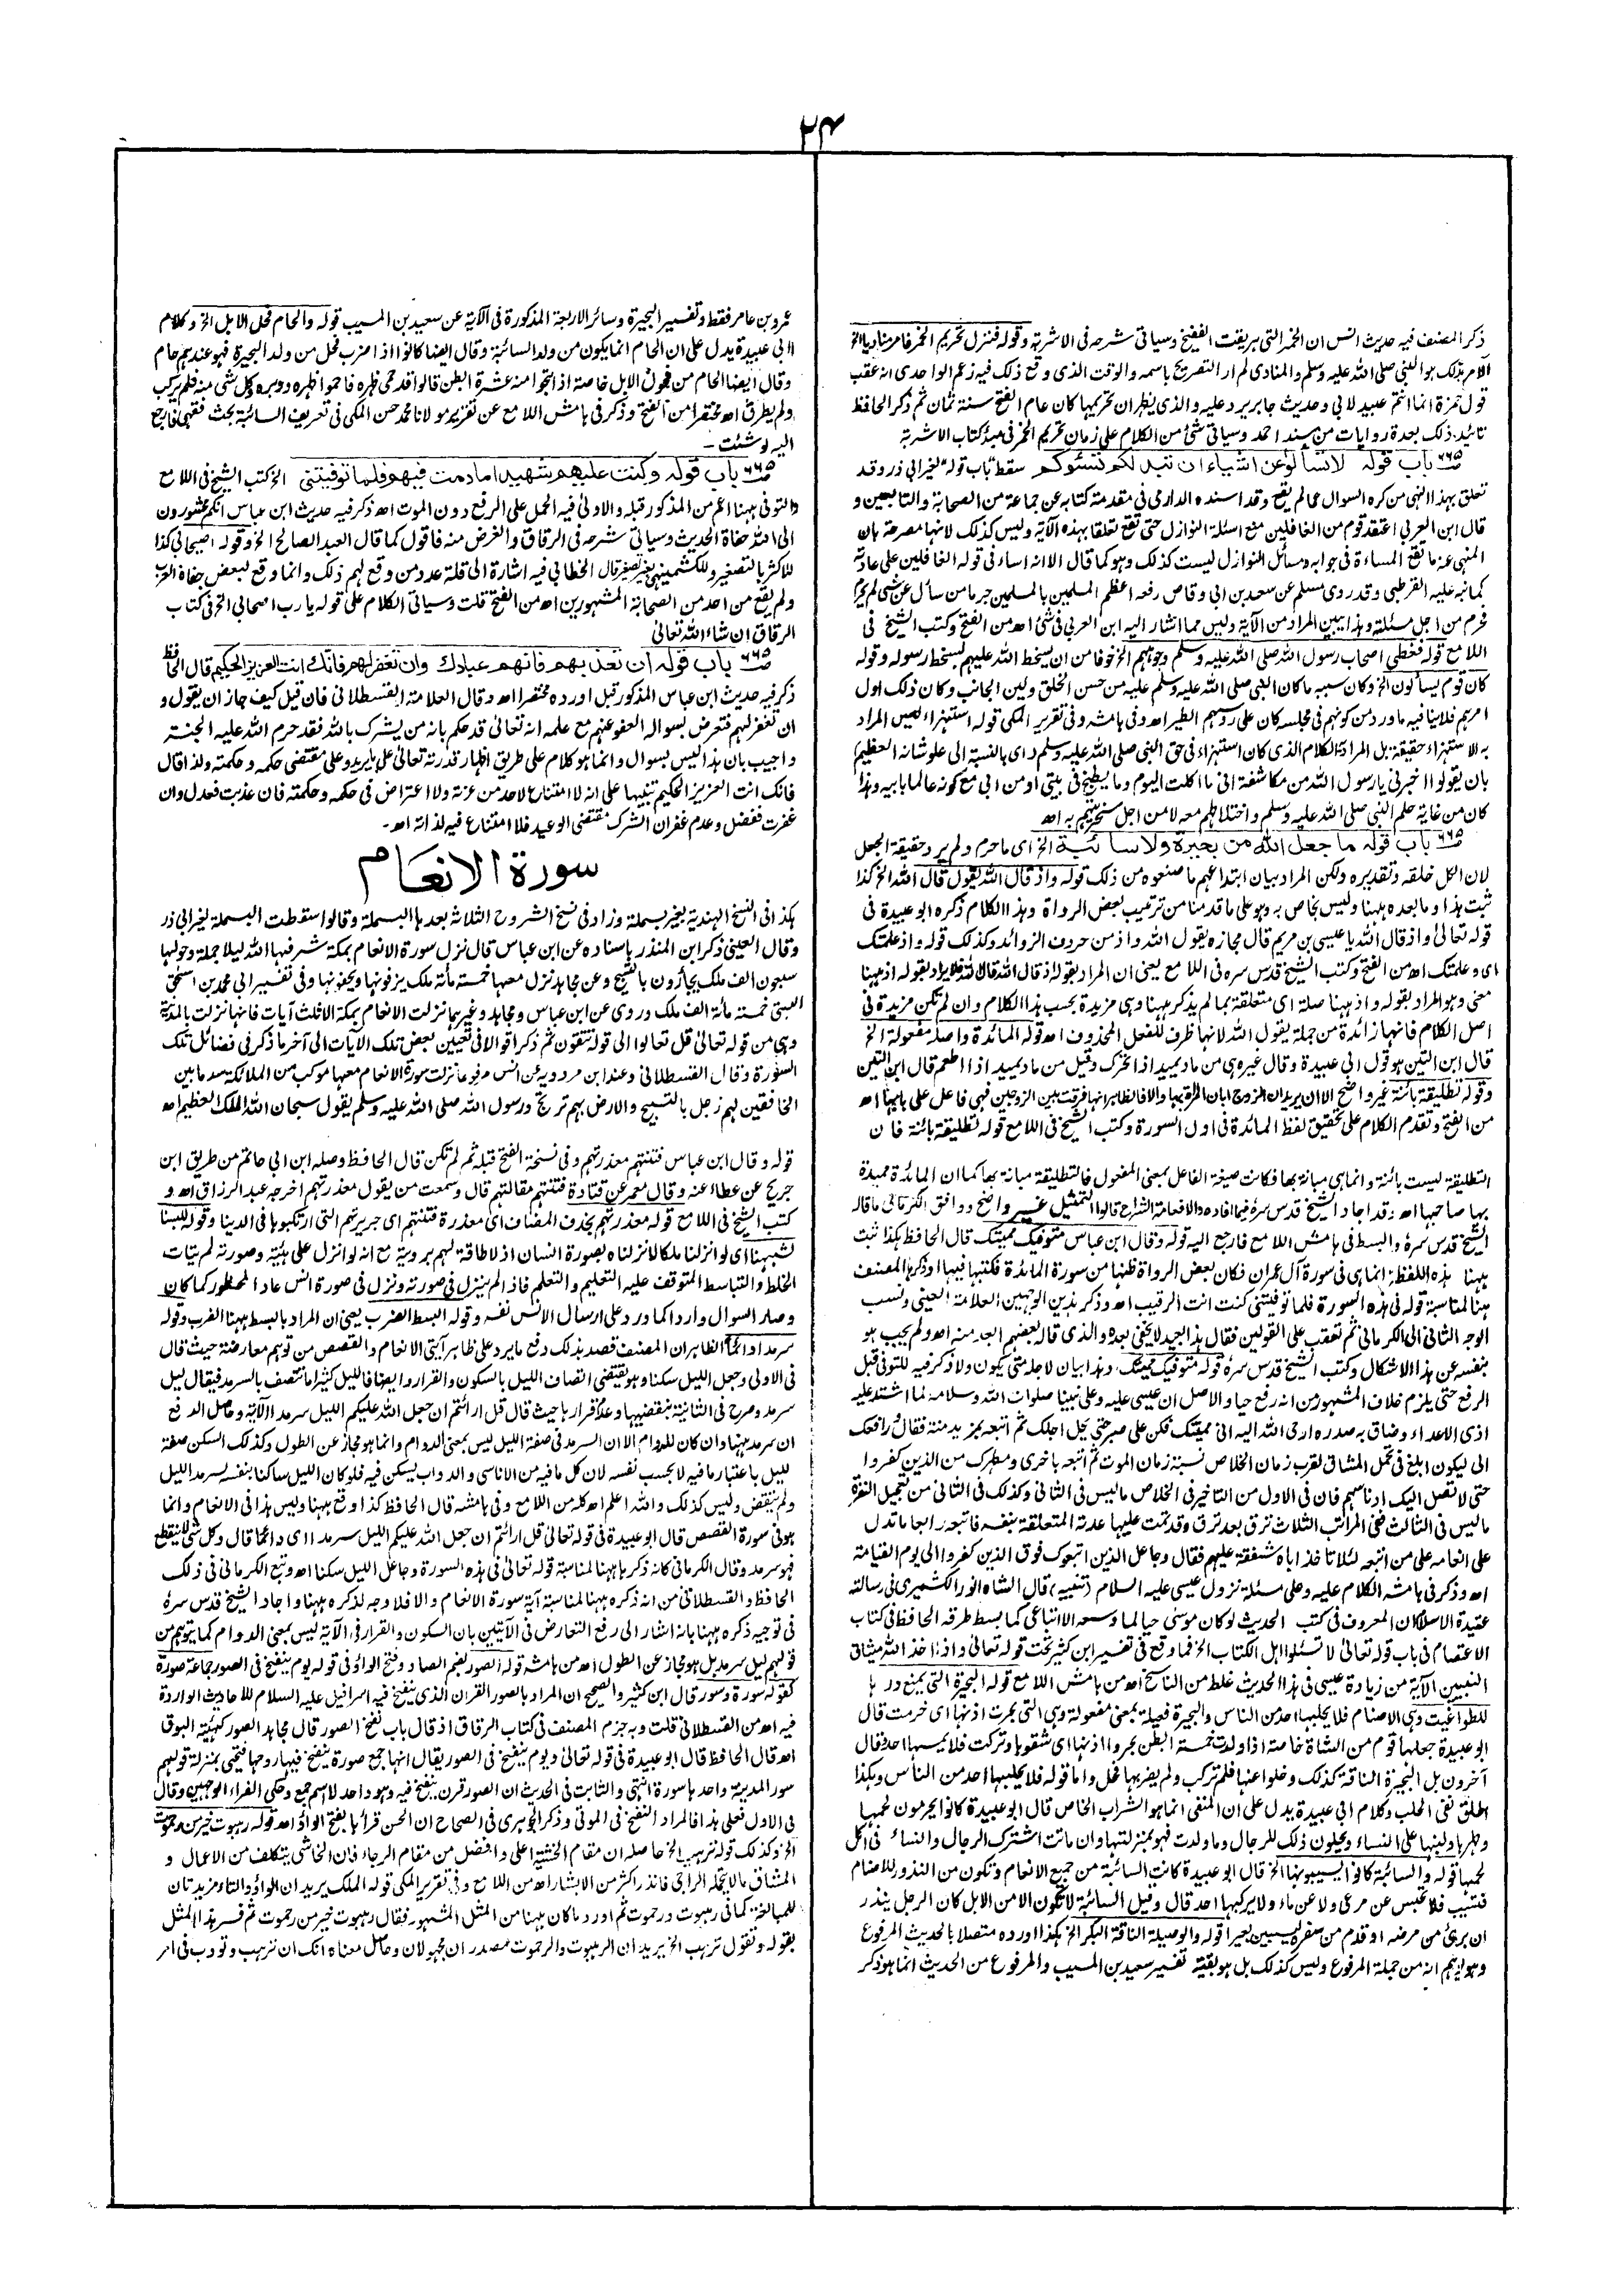 ٢٤
ذكر المصنف فيه حديث انس ان الخمر التى هريقت الفضيخ وسياتى شرحه فى الاشربة وقوله فنزل تحريم الخمر فامر مناديا الخ
الآمر بذلك هو النبى صلى الله عليه وسلم والمنادى لم ار التصريح باسمه والوقت الذى وقع ذلك فيه زعم الواحدى انه عقب
قول حمزة انما انتم عبيد لابى وحديث جابر يرد عليه والذى يظهر ان تحريمها كان عام الفتح سنة ثمان ثم ذكر الحافظ
تائيد ذلك بعدة روايات من مسند احمد وسياتى شئ من الكلام على زمان تحريم الخمر فى مبدأ كتاب الاشربة
ص٦٦٥ باب قوله لا تسألوا عن اشياء ان تبد لكم تسئوكم سقط "باب قوله" لغير ابى ذر وقد
تعلق بهذا النهى من كره السوال عما لم يقع وقد اسنده الدارمى فى مقدمة كتابه عن جماعة من الصحابة والتابعين و
قال ابن العربى اعتقد قوم من الغافلين منع اسئلة النوازل حتى تقع تعلقا بهذه الآية وليس كذلك لانها مصرحة بان
المنهى عنه ما تقع المساءة فى جوابه ومسائل النوازل ليست كذلك وهو كما قال الا انه اساء فى قوله الغافلين على عادته
كما نبه عليه القرطبى وقد روى مسلم عن سعد بن ابى وقاص رفعه اعظم المسلمين بالمسلمين جرما من سأل عن شئ لم يحرم
فحرم من اجل مسئلته وهذا يبين المراد من الآية وليس مما اشار اليه ابن العربى فى شئ اه من الفتح وكتب الشيخ فى
اللامع قوله فغطى اصحاب رسول الله صلى الله عليه وسلم وجوههم الخ خوفا من ان يسخط الله عليهم لسخط رسوله وقوله
كان قوم يسألون الخ وكان سببه ما كان النبى صلى الله عليه وسلم عليه من حسن الخلق ولين الجانب وكان ذلك اول
امرهم فلا ينافيه ما ورد من كونهم فى مجلسه كان على رؤسهم الطير اه وفى هامشه وفى تقرير المكى قوله استهزاء ليس المراد
به الاستهزاء حقيقة بل المراد الكلام الذى كان استهزاء فى حق النبى صلى الله عليه وسلم داى بالنسبة الى علو شانه العظيم)
بان يقولوا اخبرنى يا رسول الله من مكاشفة انى ما اكلت اليوم وما يطبخ فى بيتى او من ابى مع كونه عالما بابيه وهذا
كان من غاية حلم النبى صلى الله عليه وسلم واختلاطهم معه لا من اجل سخريتهم به اه
ص٦٦٥ باب قوله ما جعل الله من بحيرة ولا سائبة الخ اى ما حرم ولم يرد حقيقة الجعل
لان الكل خلقه وتقديره ولكن المراد بيان ابتداعهم ما صنعوه من ذلك قوله واذ قال الله يقول قال الله الخ كذا
ثبت هذا وما بعده ههنا وليس بخاص به وهو على ما قدمنا من ترتيب بعض الرواة وهذا الكلام ذكره ابو عبيدة فى
قوله تعالى واذ قال الله يا عيسى بن مريم قال مجازه يقول الله واذ من حروف الزوائد وكذلك قوله واذ علمتك
اى وعلمتك اه من الفتح وكتب الشيخ قدس سره فى اللامع يعنى ان المراد بقوله اذ قال الله قال الله فلا يراد بقوله اذ ههنا
معنى وهو المراد بقوله واذ ههنا صلة اى متعلقة بما لم يذكر ههنا وهى مزيدة بحسب هذا الكلام وان لم تكن مزيدة فى
اصل الكلام فانها زائدة من جملة يقول الله لانها ظرف للفعل المحذوف اه قوله المائدة واصلها مفعولة الخ
قال ابن التين هو قول ابى عبيدة وقال غيره هى من ماد يميد اذا تحرك وقيل من ماد يميد اذا اطعم قال ابن التين
وقوله تطليقة بائنة غير واضح الا ان يريد ان الزوج ابان المرأة بها والا فالظاهر انها فرقت بين الزوجين فهى فاعل على بابها اه
من الفتح وتقدم الكلام على تحقيق لفظ المائدة فى اول السورة وكتب الشيخ فى اللامع قوله تطليقة بائنة فان
التطليقة ليست بائنة وانما هى مبانة بها فكانت صيغة الفاعل بمعنى المفعول فالتطليقة مبانة بها كما ان المائدة مميدة
بها صاحبها اه وقد اجاد الشيخ قدس سره فيما افاده والا فعامة الشراح قالوا التمثيل غير واضح ووافق الكرمانى ما قاله
الشيخ قدس سره والبسط فى هامش اللامع فارجع اليه قوله وقال ابن عباس متوفيك مميتك قال الحافظ هكذا ثبت
ههنا هذه اللفظة انما هى فى سورة آل عمران فكان بعض الرواة ظنها من سورة المائدة فكتبها فيها او ذكرها المصنف
هنا لمناسبة قوله فى هذه السورة فلما توفيتنى كنت انت الرقيب اه وذكر هذين الوجهين العلامة العينى ونسب
الوجه الثانى الى الكرمانى ثم تعقب على القولين فقال هذا بعيد لا يخفى بعده والذى قاله بعضهم ابعد منه اه ولم يجب هو
بنفسه عن هذا الاشكال وكتب الشيخ قدس سره قوله متوفيك مميتك وهذا بيان لاجل متى يكون ولا ذكر فيه للتوفى قبل
الرفع حتى يلزم خلاف المشهور من انه رفع حيا والاصل ان عيسى عليه وعلى نبينا صلوات الله وسلامه لما اشتد عليه
اذى الاعداء وضاق به صدره اوحى الله اليه انى مميتك فكن على صبر حتى يحل اجلك ثم اتبعه بمزيد منة فقال ورافعك
الى ليكون ابلغ فى تحمل المشاق لقرب زمان الخلاص نسبة زمان الموت ثم اتبعه باخرى ومطهرك من الذين كفروا
حتى لا تصل اليك ادناسهم فان فى الاول من التاخير فى الخلاص ما ليس فى الثانى وكذلك فى الثانى من تعجيل النفرة
ما ليس فى الثالث ففى المراتب الثلاث ترق بعد ترق وقد تمت عليها عدته المتعلقة بنفسه فاتبعه راجا ما تدل
على انعامه على من اتبعه لئلا تاخذ اباه شفقة عليهم فقال وجاعل الذين اتبعوك فوق الذين كفروا الى يوم القيامة
اه وذكر فى هامشه الكلام عليه وعلى مسئلة نزول عيسى عليه السلام (تنبيه) قال الشاه انور الكشميرى فى رسالته
عقيدة الاسلام كان المعروف فى كتب الحديث لو كان موسى حيا لما وسعه الا اتباعى كما بسط طرقه الحافظ فى كتاب
الاعتصام فى باب قوله تعالى لا تسئلوا اهل الكتاب الخ فما وقع فى تفسير ابن كثير تحت قوله تعالى واذ اخذ الله ميثاق
النبيين الآية من زيادة عيسى فى هذا الحديث غلط من الناسخ اه من هامش اللامع قوله البحيرة التى يمنع درها
للطواغيت وهى الاصنام فلا يحلبها احد من الناس والبحيرة فعيلة بمعنى مفعولة وهى التى بحرت اذنها اى خرمت قال
ابو عبيدة جعلها قوم من الشاة خاصة اذا ولدت خمسة ابطن بحروا اذنها اى شقوها وتركت فلا يمسها احد وقال
آخرون بل البحيرة الناقة كذلك وخلوا عنها فلم تركب ولم يضربها فحل واما قوله فلا يحلبها احد من الناس وهكذا
اطلق نفى الحلب وكلام ابى عبيدة يدل على ان المنفى انما هو الشراب الخاص قال ابو عبيدة كانوا يحرمون لحمها
وظهرها ولبنها على النساء ويحلون ذلك للرجال وما ولدت فهو بمنزلتها وان ماتت اشترك الرجال والنساء فى اكل
لحمها قوله والسائبة كانوا يسيبونها الخ قال ابو عبيدة كانت السائبة من جميع الانعام وتكون من النذور للاصنام
فتسيب فلا تحبس عن مرعى ولا عن ماء ولا يركبها احد قال وقيل السائبة لا تكون الا من الابل كان الرجل ينذر
ان برئ من مرضه او قدم من سفره ليسيبن بعيرا قوله والوصيلة الناقة البكر الخ هكذا اورده متصلا بالحديث المرفوع
وهو يوهم انه من جملة المرفوع وليس كذلك بل هو بقية تفسير سعيد بن المسيب والمرفوع من الحديث انما هو ذكر
عمرو بن عامر فقط وتفسير البحيرة وسائر الاربعة المذكورة فى الآية عن سعيد بن المسيب قوله والحام فحل الابل الخ وكلام
ابى عبيدة يدل على ان الحام انما يكون من ولد السائبة وقال ايضا كانوا اذا ضرب فحل من ولد البحيرة فهو عندهم حام
وقال ايضا الحام من فحول الابل خاصة اذا نتجوا منه عشرة ابطن قالوا قد حمى ظهره فاحموا ظهره ووبره وكل شئ منه فلم يركب
ولم يطرق اه مختصرا من الفتح وذكر فى هامش اللامع عن تقرير مولانا محمد حسن المكى فى تعريف السائبة بحث فقهى فارجع
اليه لو شئت ـ
ص٦٦٥ باب قوله وكنت عليهم شهيدا ما دمت فيهم فلما توفيتنى الخ كتب الشيخ فى اللامع
والتوفى ههنا اعم من المذكور قبله والاولى فيه الحمل على الرفع دون الموت اه ذكر فيه حديث ابن عباس انكم محشورون
الى الله حفاة الحديث وسياتى شرحه فى الرقاق والغرض منه فاقول كما قال العبد الصالح الخ وقوله اصيحابى كذا
للاكثر بالتصغير وللكشميهنى بغير تصغير قال الخطابى فيه اشارة الى قلة عدد من وقع لهم ذلك وانما وقع لبعض جفاة العرب
ولم يقع من احد من الصحابة المشهورين اه من الفتح قلت وسياتى الكلام على قوله يا رب اصحابى الخ فى كتاب
الرقاق ان شاء الله تعالى
ص٦٦٥ باب قوله ان تعذبهم فانهم عبادك وان تغفر لهم فانك انت العزيز الحكيم قال الحافظ
ذكر فيه حديث ابن عباس المذكور قبل اورده مختصرا اه وقال العلامة القسطلانى فان قيل كيف جاز ان يقول و
ان تغفر لهم فتعرض بسواله العفو عنهم مع علمه انه تعالى قد حكم بانه من يشرك بالله فقد حرم الله عليه الجنة
واجيب بان هذا ليس بسوال وانما هو كلام على طريق اظهار قدرته تعالى على ما يريد وعلى مقتضى حكمه وحكمته ولذا قال
فانك انت العزيز الحكيم تنبيها على انه لا امتناع لاحد من عزته ولا اعتراض فى حكمه وحكمته فان عذبت فعدل وان
غفرت ففضل وعدم غفران الشرك مقتضى الوعيد فلا امتناع فيه لذاته اه ـ
سورة الانعام
هكذا فى النسخ الهندية بغير بسملة وزاد فى نسخ الشروح الثلاثة بعدها البسملة وقالوا سقطت البسملة لغير ابى ذر
وقال العينى ذكر ابن المنذر باسناده عن ابن عباس قال نزل سورة الانعام بمكة شرفها الله ليلا جملة وحولها
سبعون الف ملك يجأرون بالتسبيح وعن مجاهد نزل معها خمسة مائة ملك يزفونها ويحفونها وفى تفسير ابى محمد بن اسحق
البستى خمسة مائة الف ملك وروى عن ابن عباس ومجاهد وغيرهما نزلت الانعام بمكة الا ثلاث آيات فانها نزلت بالمدينة
وهى من قوله تعالى قل تعالوا الى قوله تتقون ثم ذكر اقوالا فى تعيين بعض تلك الآيات الى آخر ما ذكر فى فضائل تلك
السورة وقال القسطلانى وعند ابن مردويه عن انس مرفوعا نزلت سورة الانعام معها موكب من الملائكة سد ما بين
الخافقين لهم زجل بالتسبيح والارض بهم ترتج ورسول الله صلى الله عليه وسلم يقول سبحان الله الملك العظيم اه
قوله وقال ابن عباس فتنتهم معذرتهم وفى نسخة الفتح قبله ثم لم تكن قال الحافظ وصله ابن ابى حاتم من طريق ابن
جريج عن عطاء عنه وقال معمر عن قتادة فتنتهم مقالتهم قال وسمعت من يقول معذرتهم اخرجه عبد الرزاق اه و
كتب الشيخ فى اللامع قوله معذرتهم بحذف المضاف اى معذرة فتنتهم اى جريرتهم التى ارتكبوها فى الدنيا وقوله للبسنا
لشبهنا اى لو انزلنا ملكا لانزلناه بصورة انسان اذ لا طاقة لهم برويته مع انه لو انزل على هيئته وصورته لم يتات
الخلط والتباسط المتوقف عليه التعليم والتعلم فاذا لم ينزل فى صورته ونزل فى صورة انس عاد المحظور كما كان
وصار السوال واردا كما ورد على ارسال الانس نفسه وقوله البسط الضرب يعنى ان المراد بالبسط ههنا الضرب وقوله
سرمدا دائما الظاهر ان المصنف قصد بذلك دفع ما يرد على ظاهر آيتى الانعام والقصص من توهم معارضة حيث قال
فى الاولى وجعل الليل سكنا وهو يقتضى اتصاف الليل بالسكون والقرار وايضا فالليل كثيرا ما يتصف بالسرمد فيقال ليل
سرمد وصرح فى الثانية بنقضيها وعدم قرارها حيث قال قل ارائتم ان جعل الله عليكم الليل سرمدا الآية وحاصل الدفع
ان سرمد ههنا وان كان للدوام الا ان السرمد فى صفة الليل ليس بمعنى الدوام وانما هو مجاز عن الطول وكذلك السكن صفة
لليل باعتبار ما فيه لا بحسب نفسه لان كل ما فيه من الاناسى والدواب يسكن فيه فلو كان الليل ساكنا بنفسه لسرمد الليل
ولم ينقض وليس كذلك والله اعلم اه كله من اللامع وفى هامشه قال الحافظ كذا وقع ههنا وليس هذا فى الانعام وانما
هو فى سورة القصص قال ابو عبيدة فى قوله تعالى قل ارائتم ان جعل الله عليكم الليل سرمدا اى دائما قال وكل شئ لا ينقطع
فهو سرمد وقال الكرمانى كانه ذكرها ههنا لمناسبة قوله تعالى فى هذه السورة وجاعل الليل سكنا اه وتبع الكرمانى فى ذلك
الحافظ والقسطلانى من انه ذكره ههنا لمناسبة آية سورة الانعام والا فلا وجه لذكره ههنا واجاد الشيخ قدس سره
فى توجيه ذكره ههنا بانه اشار الى رفع التعارض فى الآيتين بان السكون والقرار فى الآية ليس بمعنى الدوام كما يتوهم من
قولهم ليل سرمد بل هو مجاز عن الطول اه من هامشه قوله الصور بضم الصاد وفتح الواو فى قوله يوم ينفخ فى الصور جماعة صورة
كقوله سورة وسور قال ابن كثير والصحيح ان المراد بالصور القرن الذى ينفخ فيه اسرافيل عليه السلام للاحاديث الواردة
فيه اه من القسطلانى قلت وبه جزم المصنف فى كتاب الرقاق اذ قال باب نفخ الصور قال مجاهد الصور كهيئة البوق
اه قال الحافظ قال ابو عبيدة فى قوله تعالى ويوم ينفخ فى الصور يقال انها جمع صورة ينفخ فيها روحها فتحيى بمنزلة قولهم
سور المدينة واحدها سورة انتهى والثابت فى الحديث ان الصور قرن ينفخ فيه وهو واحد لا اسم جمع وحكى الفراء الوجهين وقال
فى الاول فعلى هذا فالمراد النفخ فى الموتى وذكر الجوهرى فى الصحاح ان الحسن قرأها بفتح الواو اه قوله رهبوت خير من رحموت
الخ وكذلك قوله ترهب الخ حاصله ان مقام الخشية اعلى وافضل من مقام الرجاء فان الخاشى يتكلف من الاعمال و
المشاق ما لا يتحمله الراجى فانذر اكثر من الابشار اه من اللامع وفى تقرير المكى قوله الملك يريد ان الواو والتاء مزيدتان
للمبالغة كما فى رهبوت ورحموت ثم اورد ما كان ههنا من المثل المشهور فقال رهبوت خير من رحموت ثم فسر هذا المثل
بقوله وتقول ترهب الخ يريد ان الرهبوت والرحموت مصدران مجهولان وحاصل معناه انك ان ترهب وتودب فى امر